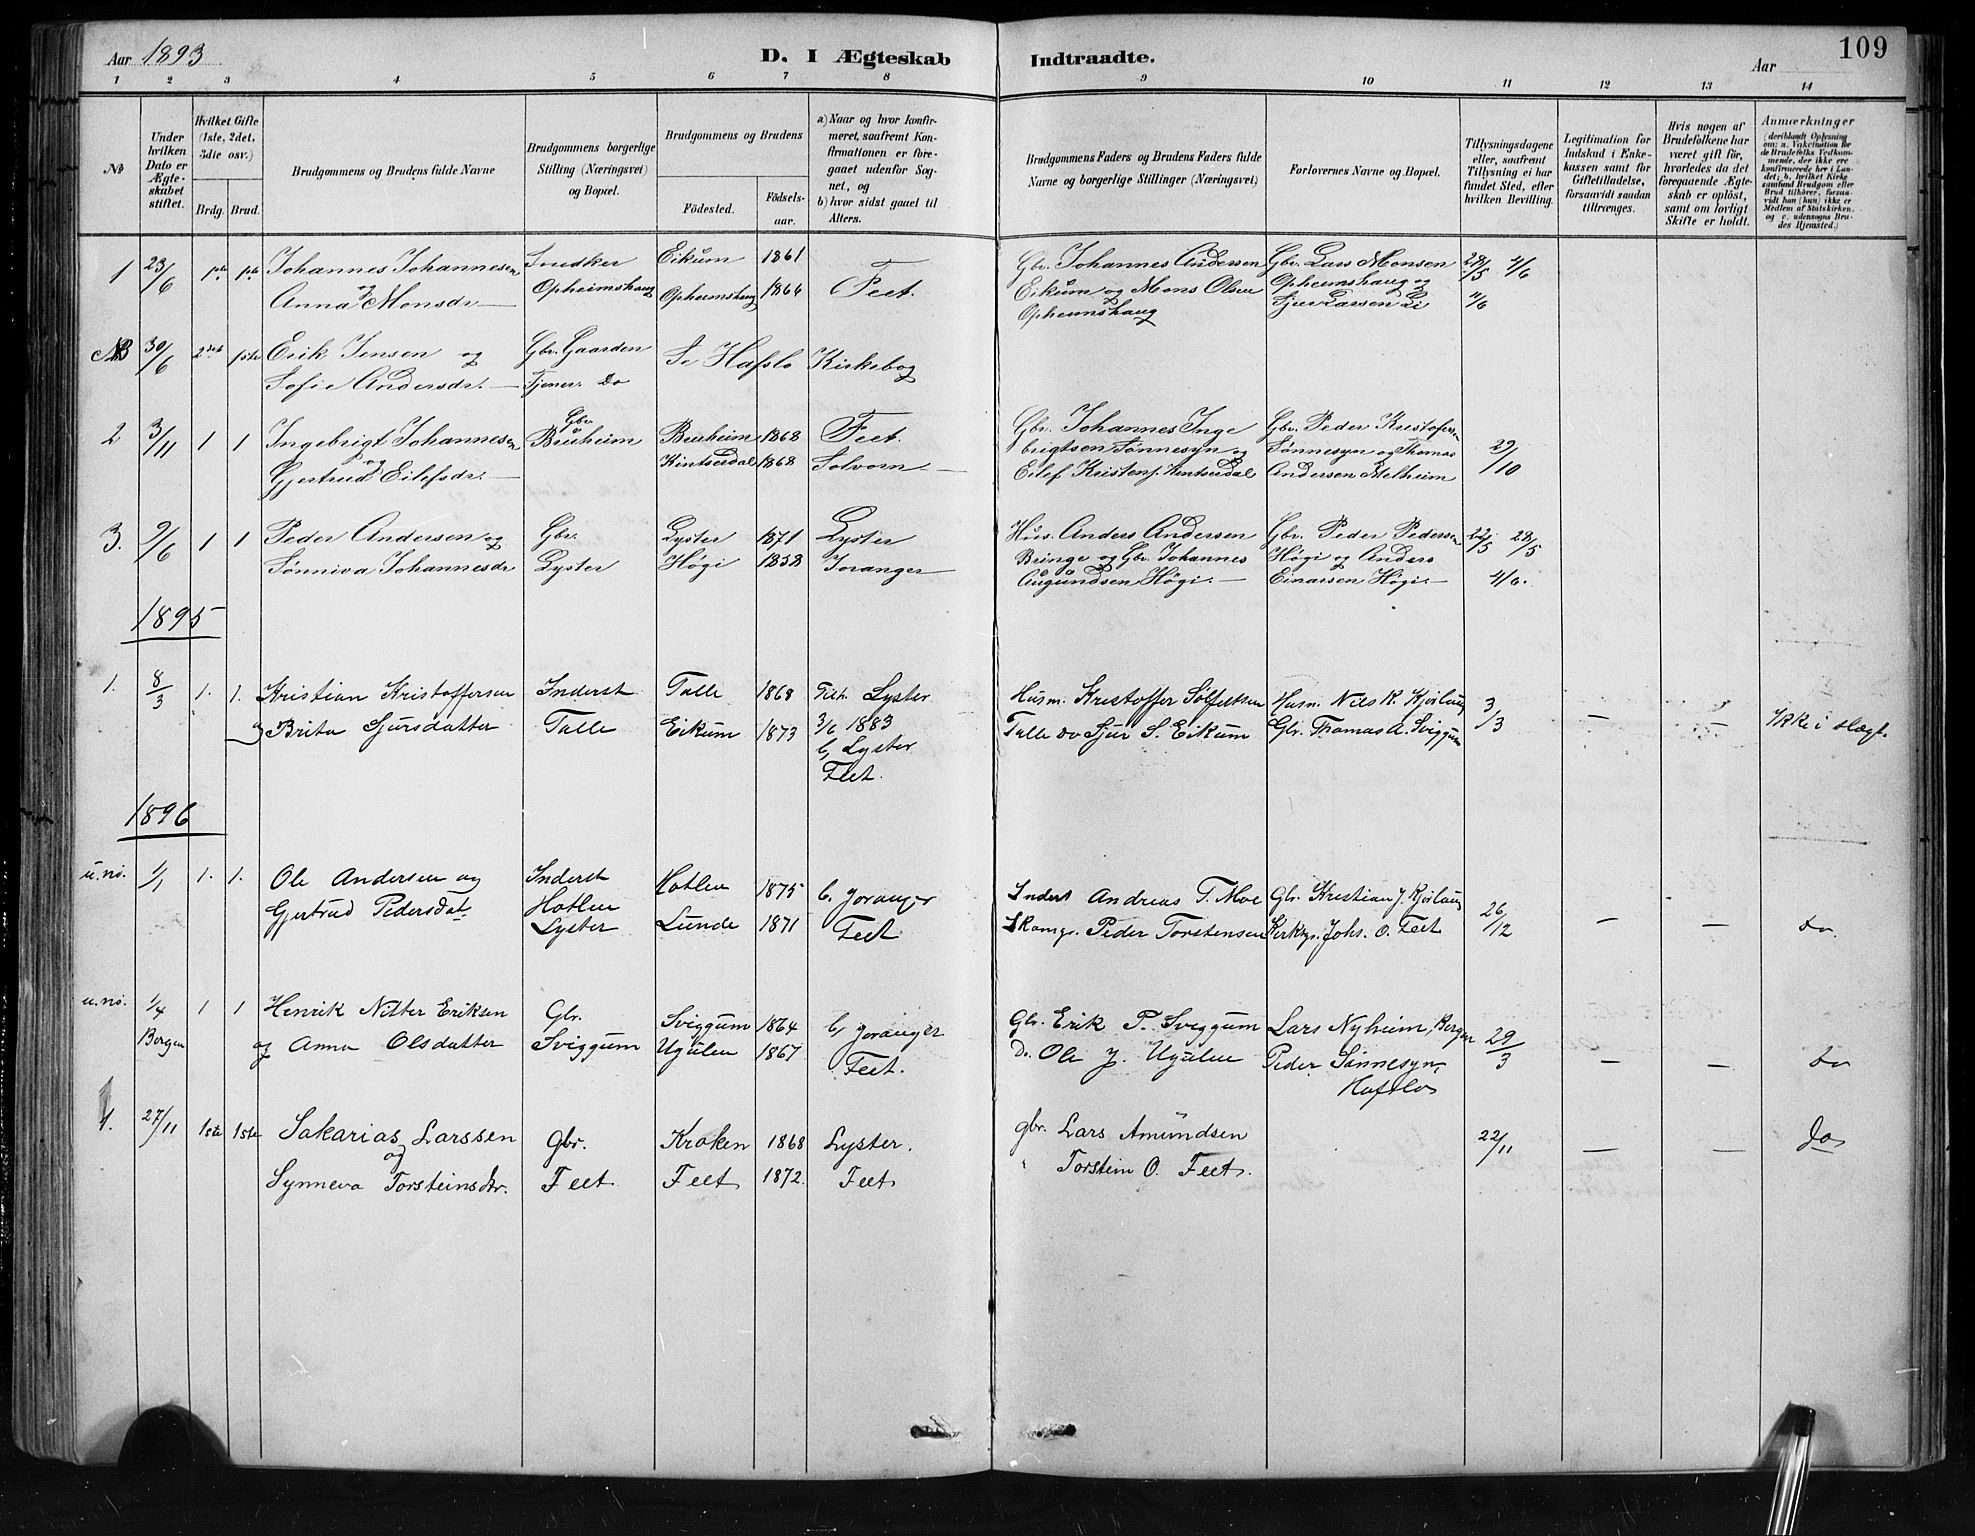 Aar 1893
D. I Ægteskab Indtraadte.
Aar
109
1 2 3 4 5 6 7 8 9 10 11 12 13 14
No
Under hvilken Dato er Ægteskabet stiftet.
Hvilket Gifte (1ste, 2det, 3die osv.)
Brdg. Brud.
Brudgommens og Brudens fulde Navne
Brudgommens borgerlige Stilling (Næringsvei) og Bopæl.
Brudgommens og Brudens
Fødested.
Fødselsaar.
a) Naar og hvor konfirmeret, saafremt Konfirmationen er foregaaet udenfor Sognet, og
b) hvor sidst gaaet til Alters.
Brudgommens Faders og Brudens Faders fulde Navne og borgerlige Stillinger (Næringsvei)
Forlovernes Navne og Bopæl.
Tillysningsdagene eller, saafremt Tillysning ei har fundet Sted, efter hvilken Bevilling.
Legitimation for Indskud i Enkekassen samt for Giftetilladelse, forsaavidt saadan tiltrænges.
Hvis nogen af Brudefolkene har været gift før, hvorledes da det foregaaende Ægteskab er opløst, samt om lovligt Skifte er holdt.
Anmærkninger (deriblandt Oplysning om: a. Vakcination for de Brudefolks Vedkommende, der ikke ere konfirmerede her i Landet; b. hvilket Kirkesamfund Brudgom eller Brud tilhører, forsaavidt han (hun) ikke er Medlem af Statskirken, og c. udensogns Brudes Hjemsted.)
1 23/6 1ste 1ste Johannes Johannesen Snedker Eikum 1861 Gbr. Johannes Andersen Gbr. Lars Monsen 28/5 4/6
og Anna Monsdr. Opheimshaug Opheimshaug 1864 Feet. Eikum og Mons Olsen Opheimshaug og 11/6
Opheimshaug Sjur Larsen Li
NB 30/6 2det 1ste Erik Jensen og Gbr. Gaarden Se Hafslo Kirkebog
Sofie Andersdr. Tjener. Do
2 3/11 1 1 Ingebrigt Johannesen Gbr. Beheim 1868 Feet. Gbr. Johannes Inge Gbr. Peder Kristofersen
og Gjertrud Eilefsdr. Kintserdal 1868 Solvorn brigtsen Sønnesyn og Sønnesyn og Thomas 29/10
Eilef Kristens. Kintserdal Andersen Melheim
3. 9/6 1 1 Peder Andersen og Gbr. Lyster 1871 Lyster Hus. Anders Andersen Gbr. Peder Pedersen 22/5 28/5
Sønniva Johannesdr Lyster Høgi 1858 Joranger Bringe og Gbr. Johannes Høgi og Anders
Augundsen Høgi. Einarsen Høgi. 4/6.
1895
1. 8/3 1. 1. Kristian Kristoffersen Inderst Talle 1868 Filt. Lyster Husm. Kristoffer Sølfestsen Husm. Nils K. Kjørlaug 3/3
og Brita Sjursdatter Talle Eikum 1873 3/6 1883 Talle Do Sjur S. Eikum Gbr. Thomas A. Sviggum — — Ikke i slægt.
b, Lyster
Feet.
1896
u. no. 1/1 1. 1. Ole Andersen og Inderst Hotlen 1875 b. Joranger Inderst Andreas T. Moe Gbr. Kristian J. Kjørlaug 26/12
Gjertrud Pedersdat Hotlen Lunde 1871 Feet Skomgr. Peder Torstensen Kirktj. Johs. O. Feet — — do.
Lyster
u. no. 1/4 1 1 Henrik Nitter Eriksen Gbr. Sviggum 1864 b, Joranger Gbr. Erik P. Sviggum Lars Nyheim, Bergen 29/3
Bergen og Anna Olsdatter Sviggum Ugulen 1867 Feet. Do. Ole J. Ugulen Peder Sønnesyn, — — do
Hafslo
1. 27/11 1ste 1ste Sakarias Larssen Gbr. Kroken 1868 Lyster. gbr. Lars Amundsen 22/11 — — do
og
Synneva Torsteinsdtr. Feet Feet 1872. Feet " Torstein O. Feet.